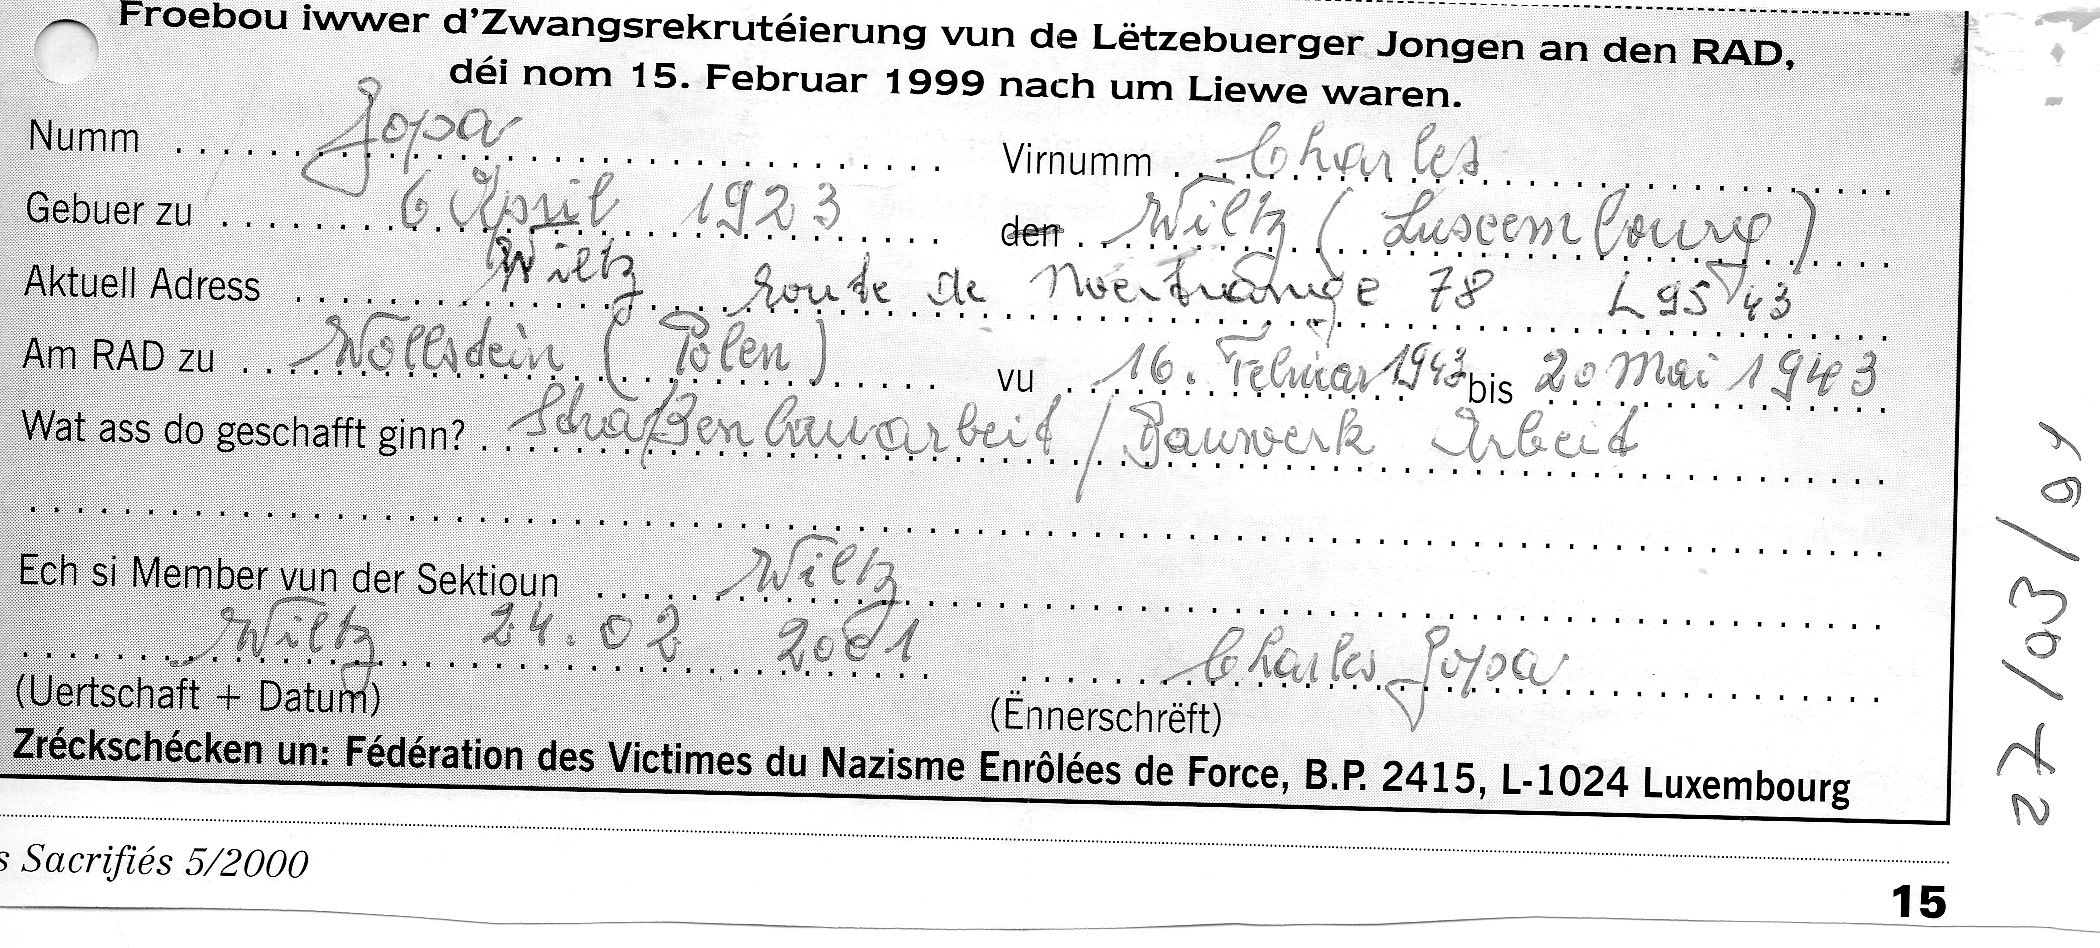 Froebou iwwer d'Zwangsrekrutéierung vun de Lëtzebuerger Jongen an den RAD,
déi nom 15. Februar 1999 nach um Liewe waren.
Numm Jopa Virnumm Charles
Gebuer zu 6 April 1923 den Wiltz (Luxembourg)
Aktuell Adress Wiltz route de Noertrange 78 L 9543
Am RAD zu Wollstein (Polen) vu 16. Februar 1943 bis 20 Mai 1943
Wat ass do geschafft ginn? Straßenbauarbeit / Bauwerk Arbeit
Ech si Member vun der Sektioun Wiltz
Wiltz 24.02 2001 Charles Jopa
(Uertschaft + Datum) (Ënnerschrëft)
Zréckschécken un: Fédération des Victimes du Nazisme Enrôlées de Force, B.P. 2415, L-1024 Luxembourg
s Sacrifiés 5/2000
15
27/03/01